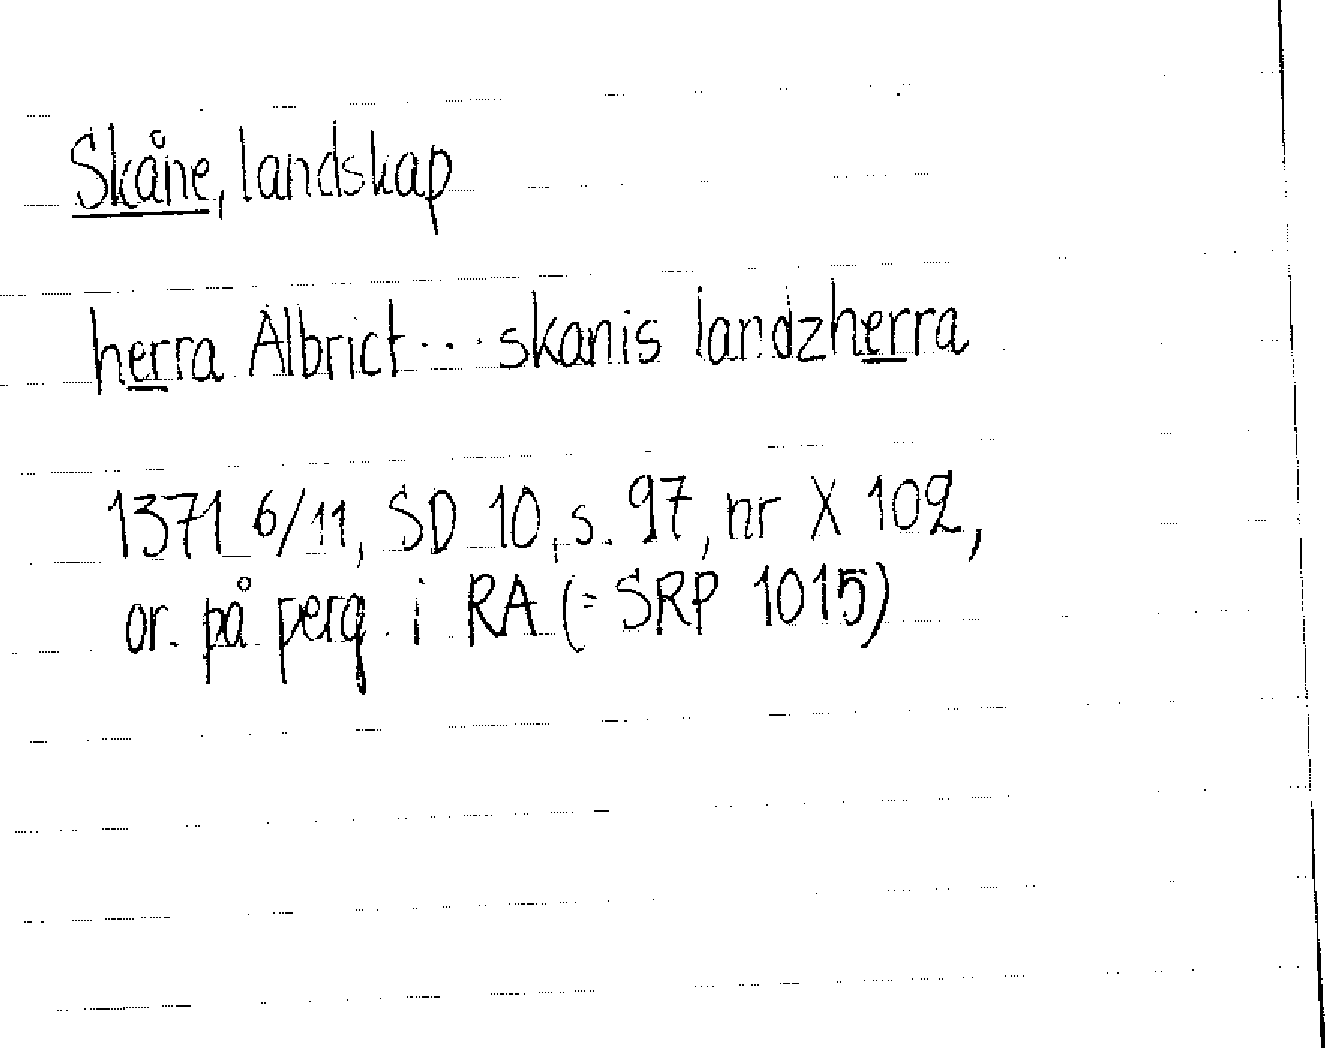 Skåne, landskap
herra Albrict... skanis landzherra
1371 6/11, SD 10, s. 97, nr X 102,
or. på perg. i RA (= SRP 1015)